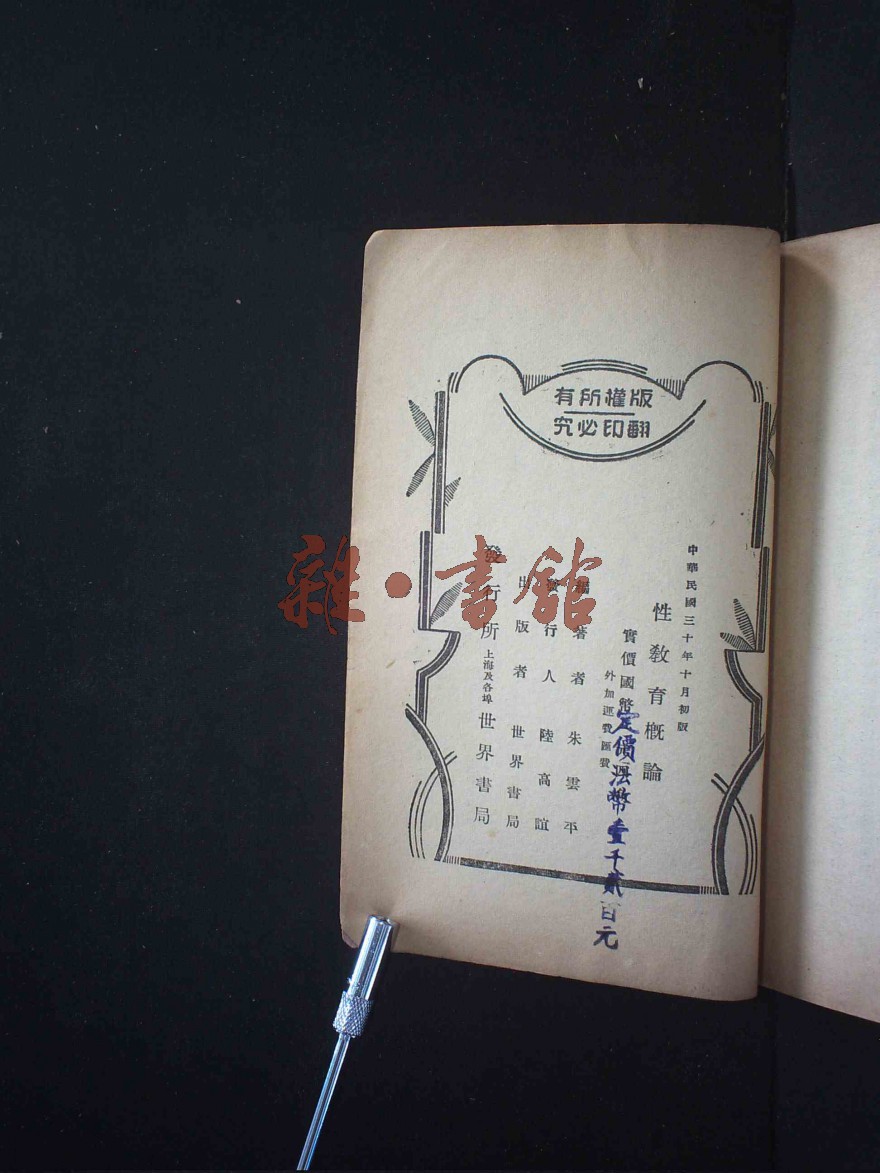 版權所有
翻印必究
中華民國三十年十月初版
性教育概論
實價國幣
外加運費匯費
定價法幣壹千貳百元
編著者 朱雲平
發行人 陸高誼
出版者 世界書局
發行所 上海及各埠 世界書局
雜·書館